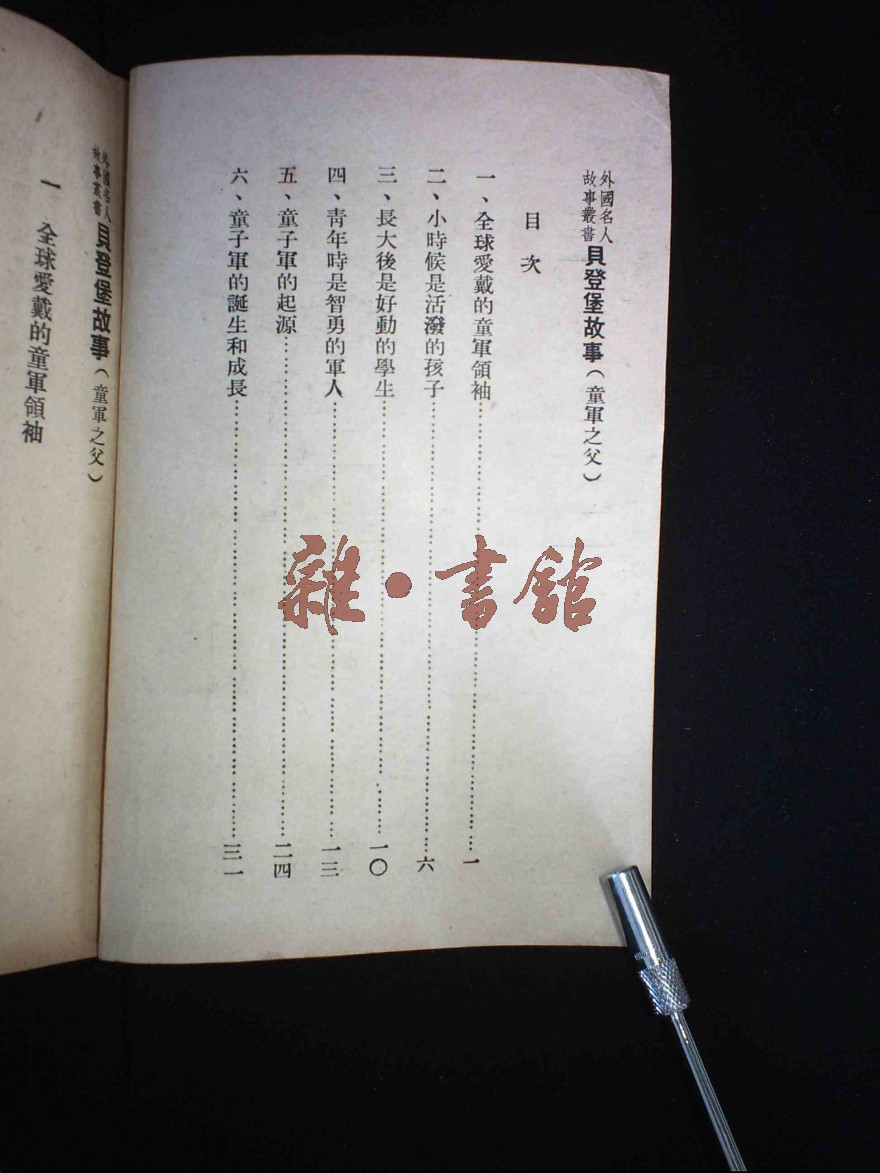 外國名人
故事叢書
貝登堡故事（童軍之父）
目次
一、全球愛戴的童軍領袖……一
二、小時候是活潑的孩子……六
三、長大後是好動的學生……一〇
四、靑年時是智勇的軍人……一三
五、童子軍的起源……二四
六、童子軍的誕生和成長……三一
外國名人
故事叢書
貝登堡故事（童軍之父）
一 全球愛戴的童軍領袖
雜·書館